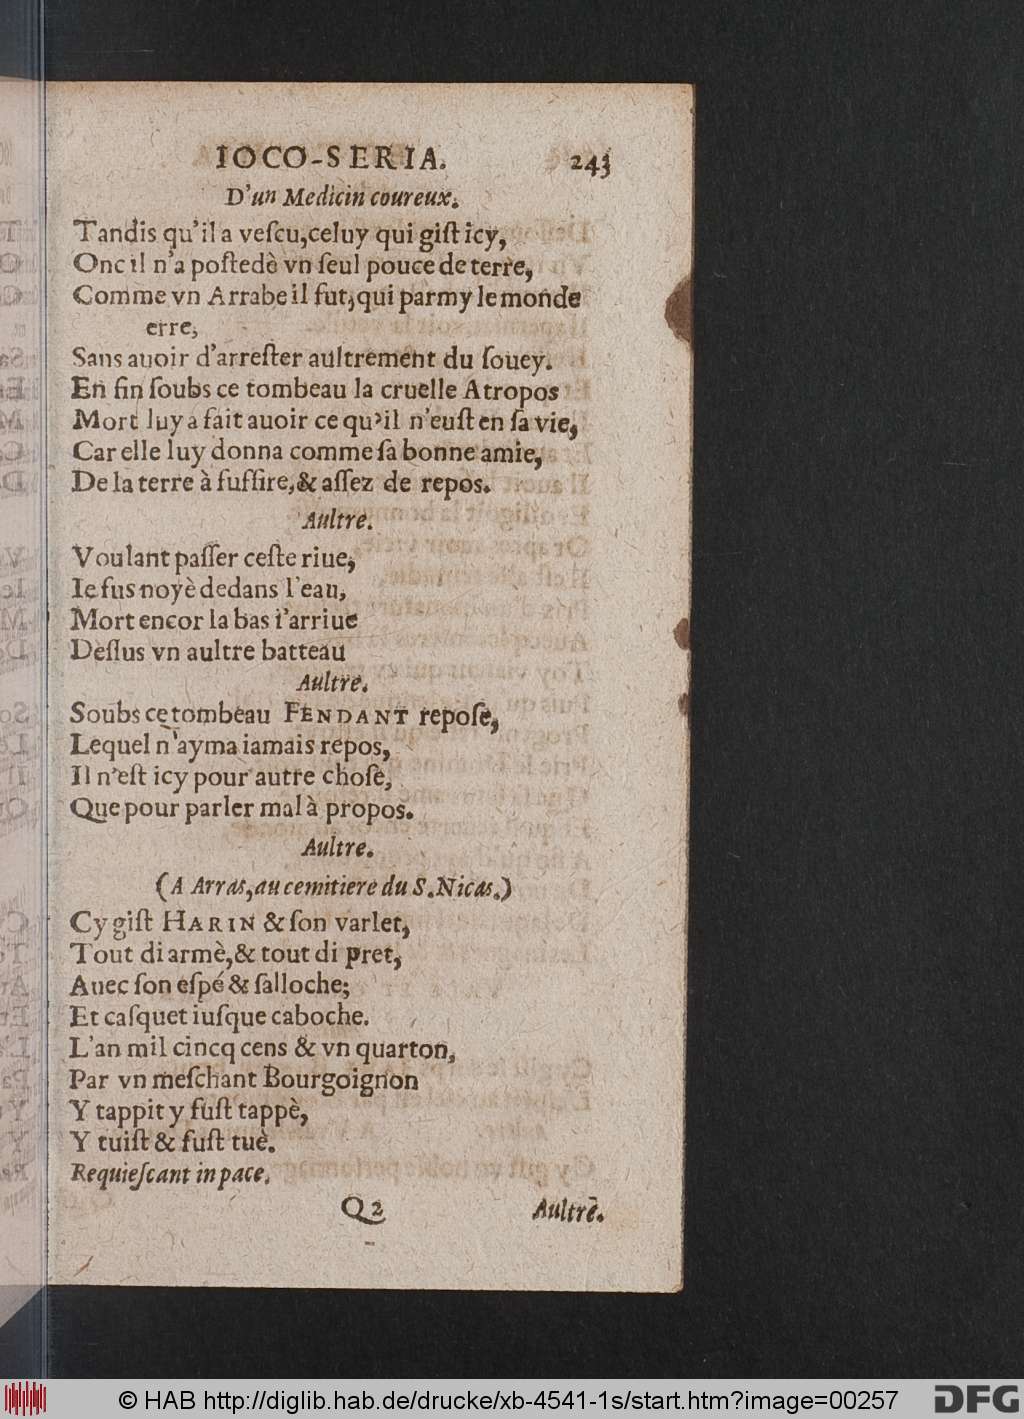 IOCO-SERIA. 243
D'un Medicin coureux.
Tandis qu'il a veſcu, celuy qui giſt icy,
Onc il n'a poſtedè vn ſeul pouce de terre,
Comme vn Arrabe il fut, qui parmy le monde
erre,
Sans auoir d'arreſter aultrement du ſouey.
En fin ſoubs ce tombeau la cruelle Atropos
Mort luy a fait auoir ce qu'il n'euſt en ſa vie,
Car elle luy donna comme ſa bonne amie,
De la terre à ſuffire, & aſſez de repos.
Aultre.
Voulant paſſer ceſte riue,
Ie fus noyè dedans l'eau,
Mort encor la bas i'arriue
Deſſus vn aultre batteau
Aultre.
Soubs ce tombeau FENDANT repoſe,
Lequel n'ayma iamais repos,
Il n'eſt icy pour autre choſe,
Que pour parler mal à propos.
Aultre.
(A Arras, au cemitiere du S. Nicas.)
Cy giſt HARIN & ſon varlet,
Tout di armè, & tout di pret,
Auec ſon eſpé & ſalloche;
Et caſquet iuſque caboche.
L'an mil cincq cens & vn quarton,
Par vn meſchant Bourgoignon
Y tappit y fuſt tappè,
Y tuiſt & fuſt tuè.
Requieſcant in pace.
Q 2 Aultre.
© HAB http://diglib.hab.de/drucke/xb-4541-1s/start.htm?image=00257 DFG